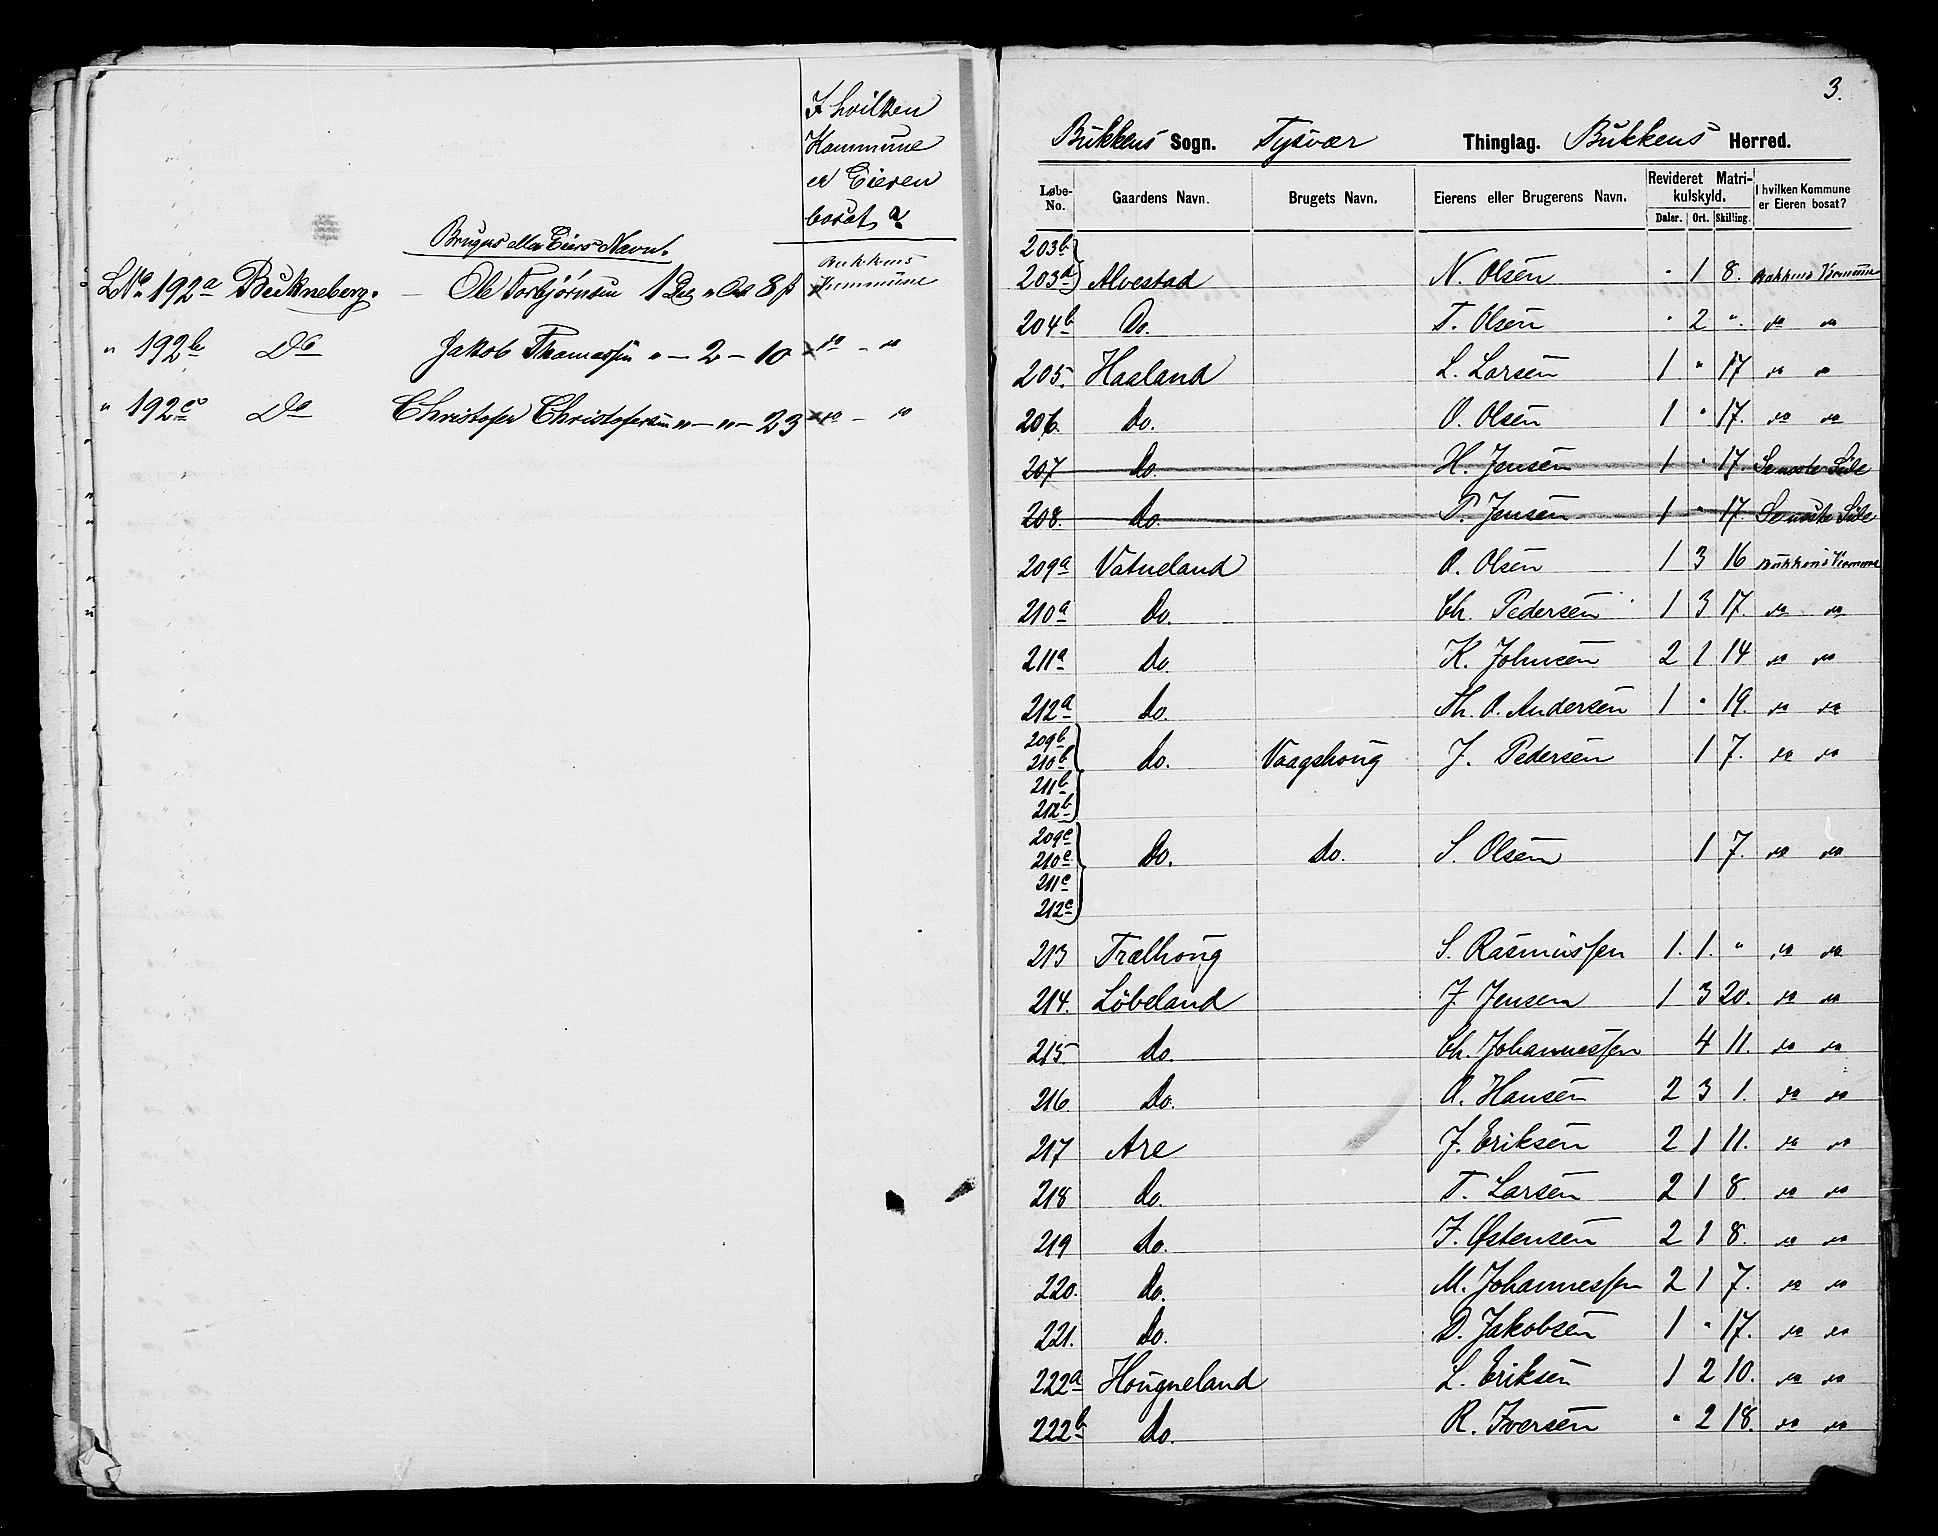 I hvilken
Kommune
er Eieren
bosat?
Brugers eller Eiers Navn.
LNo 192a Bukneberg. – Ole Torbjørnsen 1 Dlr " Ort 8 ß Bukkens Kommune
" 192b Do Jakob Thomassen " – 2 – 10 do – do
" 192c Do Christofer Christofersen " – " – 23 do – do
3.
Bukkens Sogn. Tysvær Thinglag. Bukkens Herred.
Løbe-No. Gaardens Navn. Brugets Navn. Eierens eller Brugerens Navn. Revideret Matrikulskyld. I hvilken Kommune er Eieren bosat?
Daler. Ort. Skilling.
203b
203a Alvestad N. Olsen " 1 8. Bukkens Kommune
204b Do. T. Olsen " 2 ". do do
205. Haaland L. Larsen 1 " 17 do do
206. Do. O. Olsen 1 " 17. do do
207 Do. H. Jensen 1 " 17. Se næste Side
208. Do. P. Jensen 1 " 17. Se næste Side
209a Vatneland O. Olsen 1 3 16 Bukkens Kommune
210a Do. Ch. Pedersen 1 3 17. do do
211a Do. K. Johnsen 2 1 14 do do
212a Do. Th. O. Andersen 1 " 19. do do
209b
210b Do. Vaagshoug J. Pedersen 1 7. do do
211b
212b
209c
210c Do. Do. S. Olsen 1 7. do do
211c
212c
213 Trælhoug S. Rasmussen 1. 1. " do do
214. Løbeland J. Jensen 1 3 20. do do
215 Do. Ch. Johannessen 4 11. do do
216. Do. O. Hansen 2 3 1. do do
217 Are J. Eriksen 2 1 11. do do
218 Do. T. Larsen 2 1 8. do do
219 Do. J. Østensen 2 1 8. do do
220. Do. M. Johannessen 2 1 7. do do
221. Do. D. Jakobsen 1 " 17. do do
222a Hougneland L. Eriksen 1 2 10. do do
222b Do. R. Iversen " 2 18. do do